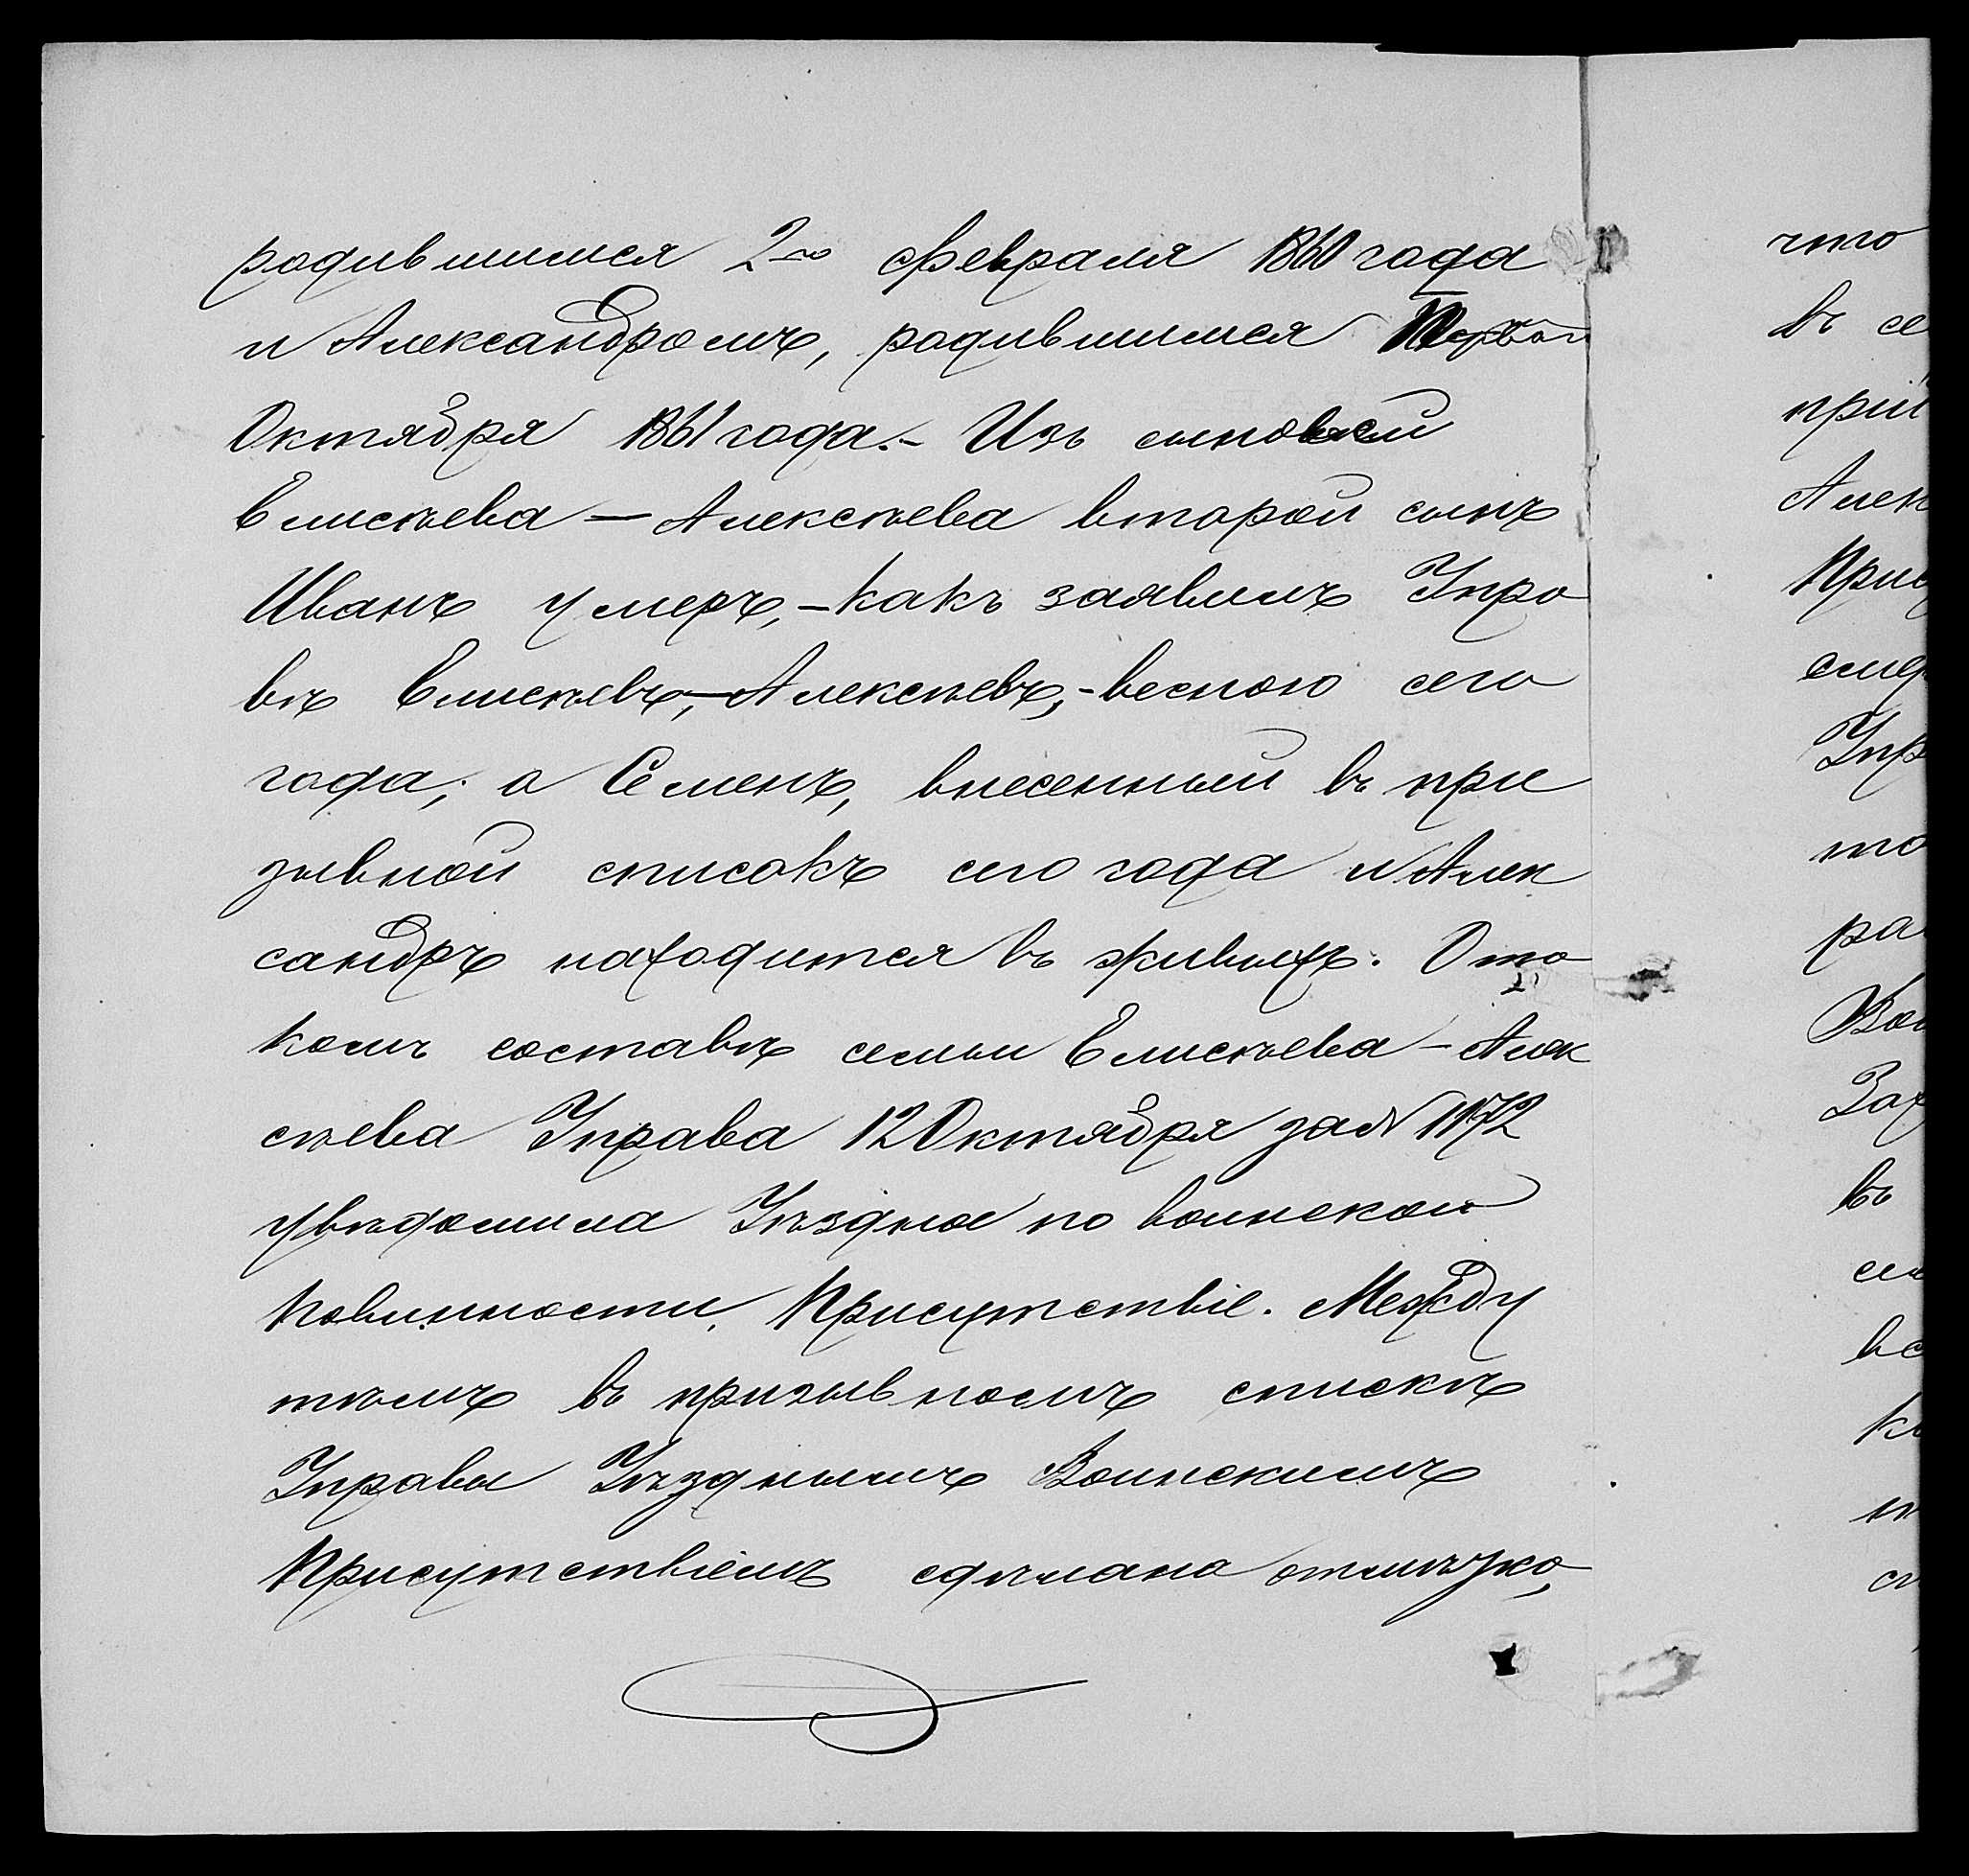 родившимся 2го февраля 1860 года
и Александромъ, родившимся Перваго
Октября 1861 года. – Изъ сыновей
Елисѣева – Алексѣева второй сынъ
Иванъ умеръ, – какъ заявилъ Упра
вѣ Елисѣевъ, – Алексѣевъ, – весною сего
года; а Семенъ, внесенный въ при
зывной списокъ сего года и Алек
сандръ находится въ живыхъ. О та
комъ составѣ семьи Елисѣева – Алек
сѣева Управа 12 Октября за № 1172
увѣдомила Уѣздное по воинской
повинности Присутствіе. Между
тѣмъ въ призывномъ спискѣ
Управы Уѣзднымъ Воинскимъ
Присутствіемъ сдѣлана отмѣтка,
что
въ се
прій
Алек
При
смер
Упр
то
ра
Вои
Зах
въ
се
вс